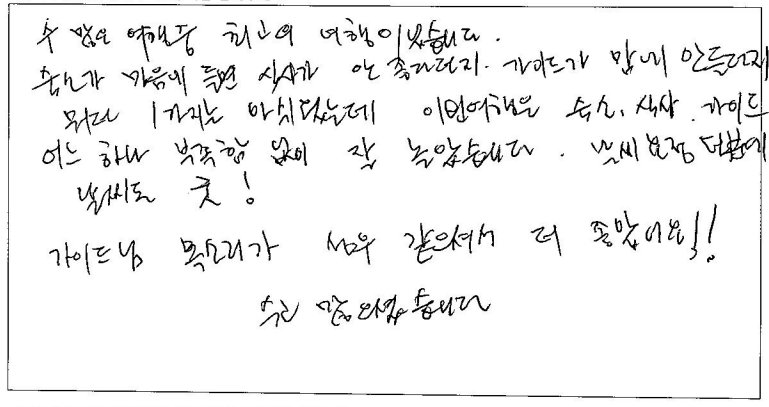 수 많은 여행중 최고의 여행이었습니다.
숙소가 마음에 들면 식사가 안 좋다던지. 가이드가 맘에 안들던지
뭐다 1가지는 아쉬웠는데 이번여행은 숙소, 식사, 가이드
어느 하나 부족함 없이 잘 놀았습니다. 날씨요정 덕분에
날씨도 굿!
가이드님 목소리가 성우 같으셔서 더 좋았어요!!
수고 많으셨습니다